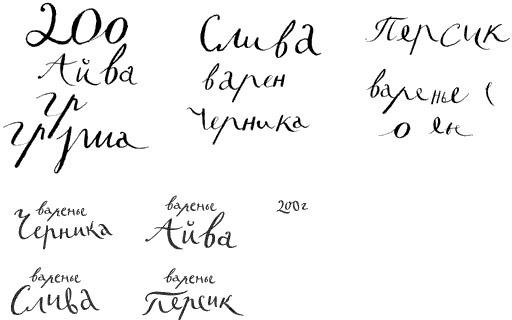 200
Айва
гр
груша
Слива
варен
Черника
Персик
варенье (
о ен
варенье
Черника
варенье
Айва
200г
варенье
Слива
варенье
Персик